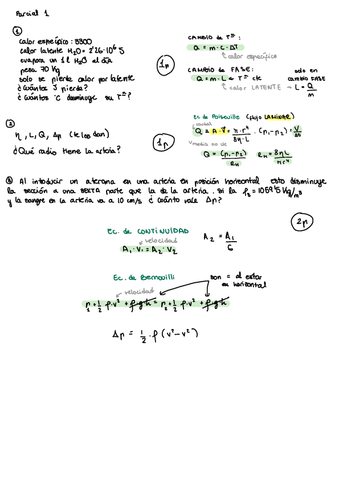 Parcial 1
①
calor específico: 3300
calor latente H₂O = 2'26·10⁶ S
evapora un l H₂O al día
pesa 70 Kg
solo se pierde calor por latente
¿Cuántos J pierde?
¿cuántos °C disminuye su Tª?
1p
CAMBIO de Tª:
Q = m · c · ΔT
calor específico
CAMBIO de FASE:
Q = m · L → Tª cte
solo en cambio FASE
calor LATENTE → L = Q/m
②
η, L, Q, Δp (te los dan)
¿Qué radio tiene la arteria?
1p
Ec. de Poiseuille (flujo LAMINAR)
caudal
Q = A · V̄ = π · r⁴ / 8η · L · (p₁ - p₂) = V/Δt
Vmedia
Q = (p₁ - p₂) / RH
RH = 8ηL / πr⁴
③ Al introducir un ateroma en una arteria en posición horizontal esto disminuye
la sección a una SEXTA parte que la de la arteria. Si la
y la sangre en la arteria va a 10 cm/s ¿cuánto vale Δp?
2p
Ec. de CONTINUIDAD
velocidad
A₁ · V₁ = A₂ · V₂
A₂ = A₁/6
Ec. de Bernouilli
son = al estar en horizontal
velocidad
p₁ + 1/2 ρ·v² + ρgh = p₂ + 1/2 ρ·v² + ρgh
Δp = 1/2 · ρ (v² - v²)